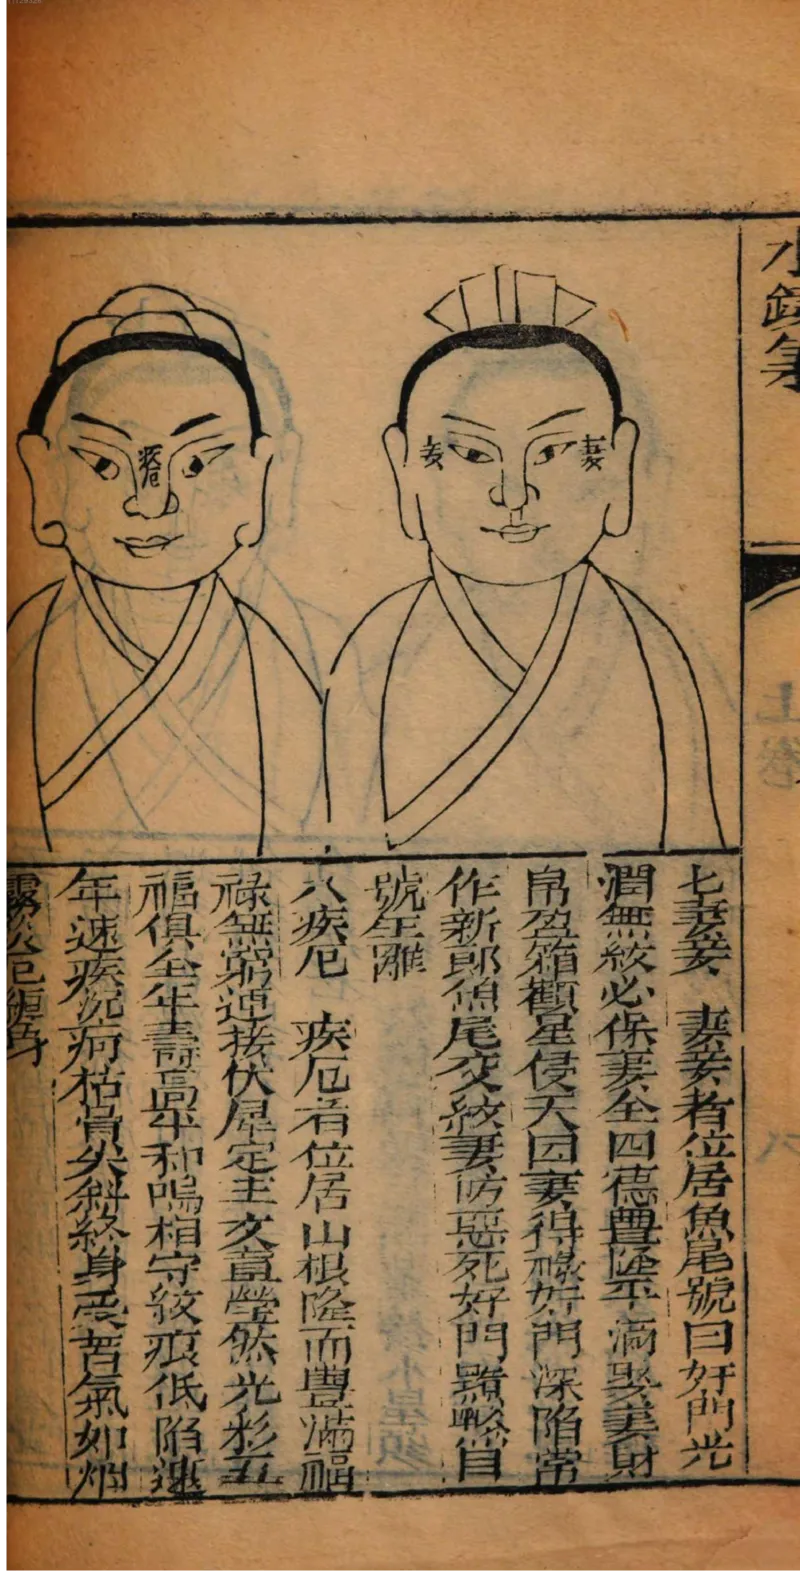 水鏡集
上卷
妻
妾
疾厄
七妻妾　妻妾者位居魚尾號曰奸門光
潤無紋必保妻全四德豊隆平滿娶妻財
帛盈箱顴星侵天因妻得祿奸門深陷常
作新郎魚尾交紋妻防惡死奸門黲黲自
號生離
八疾厄　疾厄者位居山根隆而豊滿福
祿無窮連接伏犀定主文章瑩然光彩五
福俱全年壽高平和鳴相守紋痕低陷連
年速疾沉疴枯骨尖斜終身受苦氣如烟
霧災厄纏身